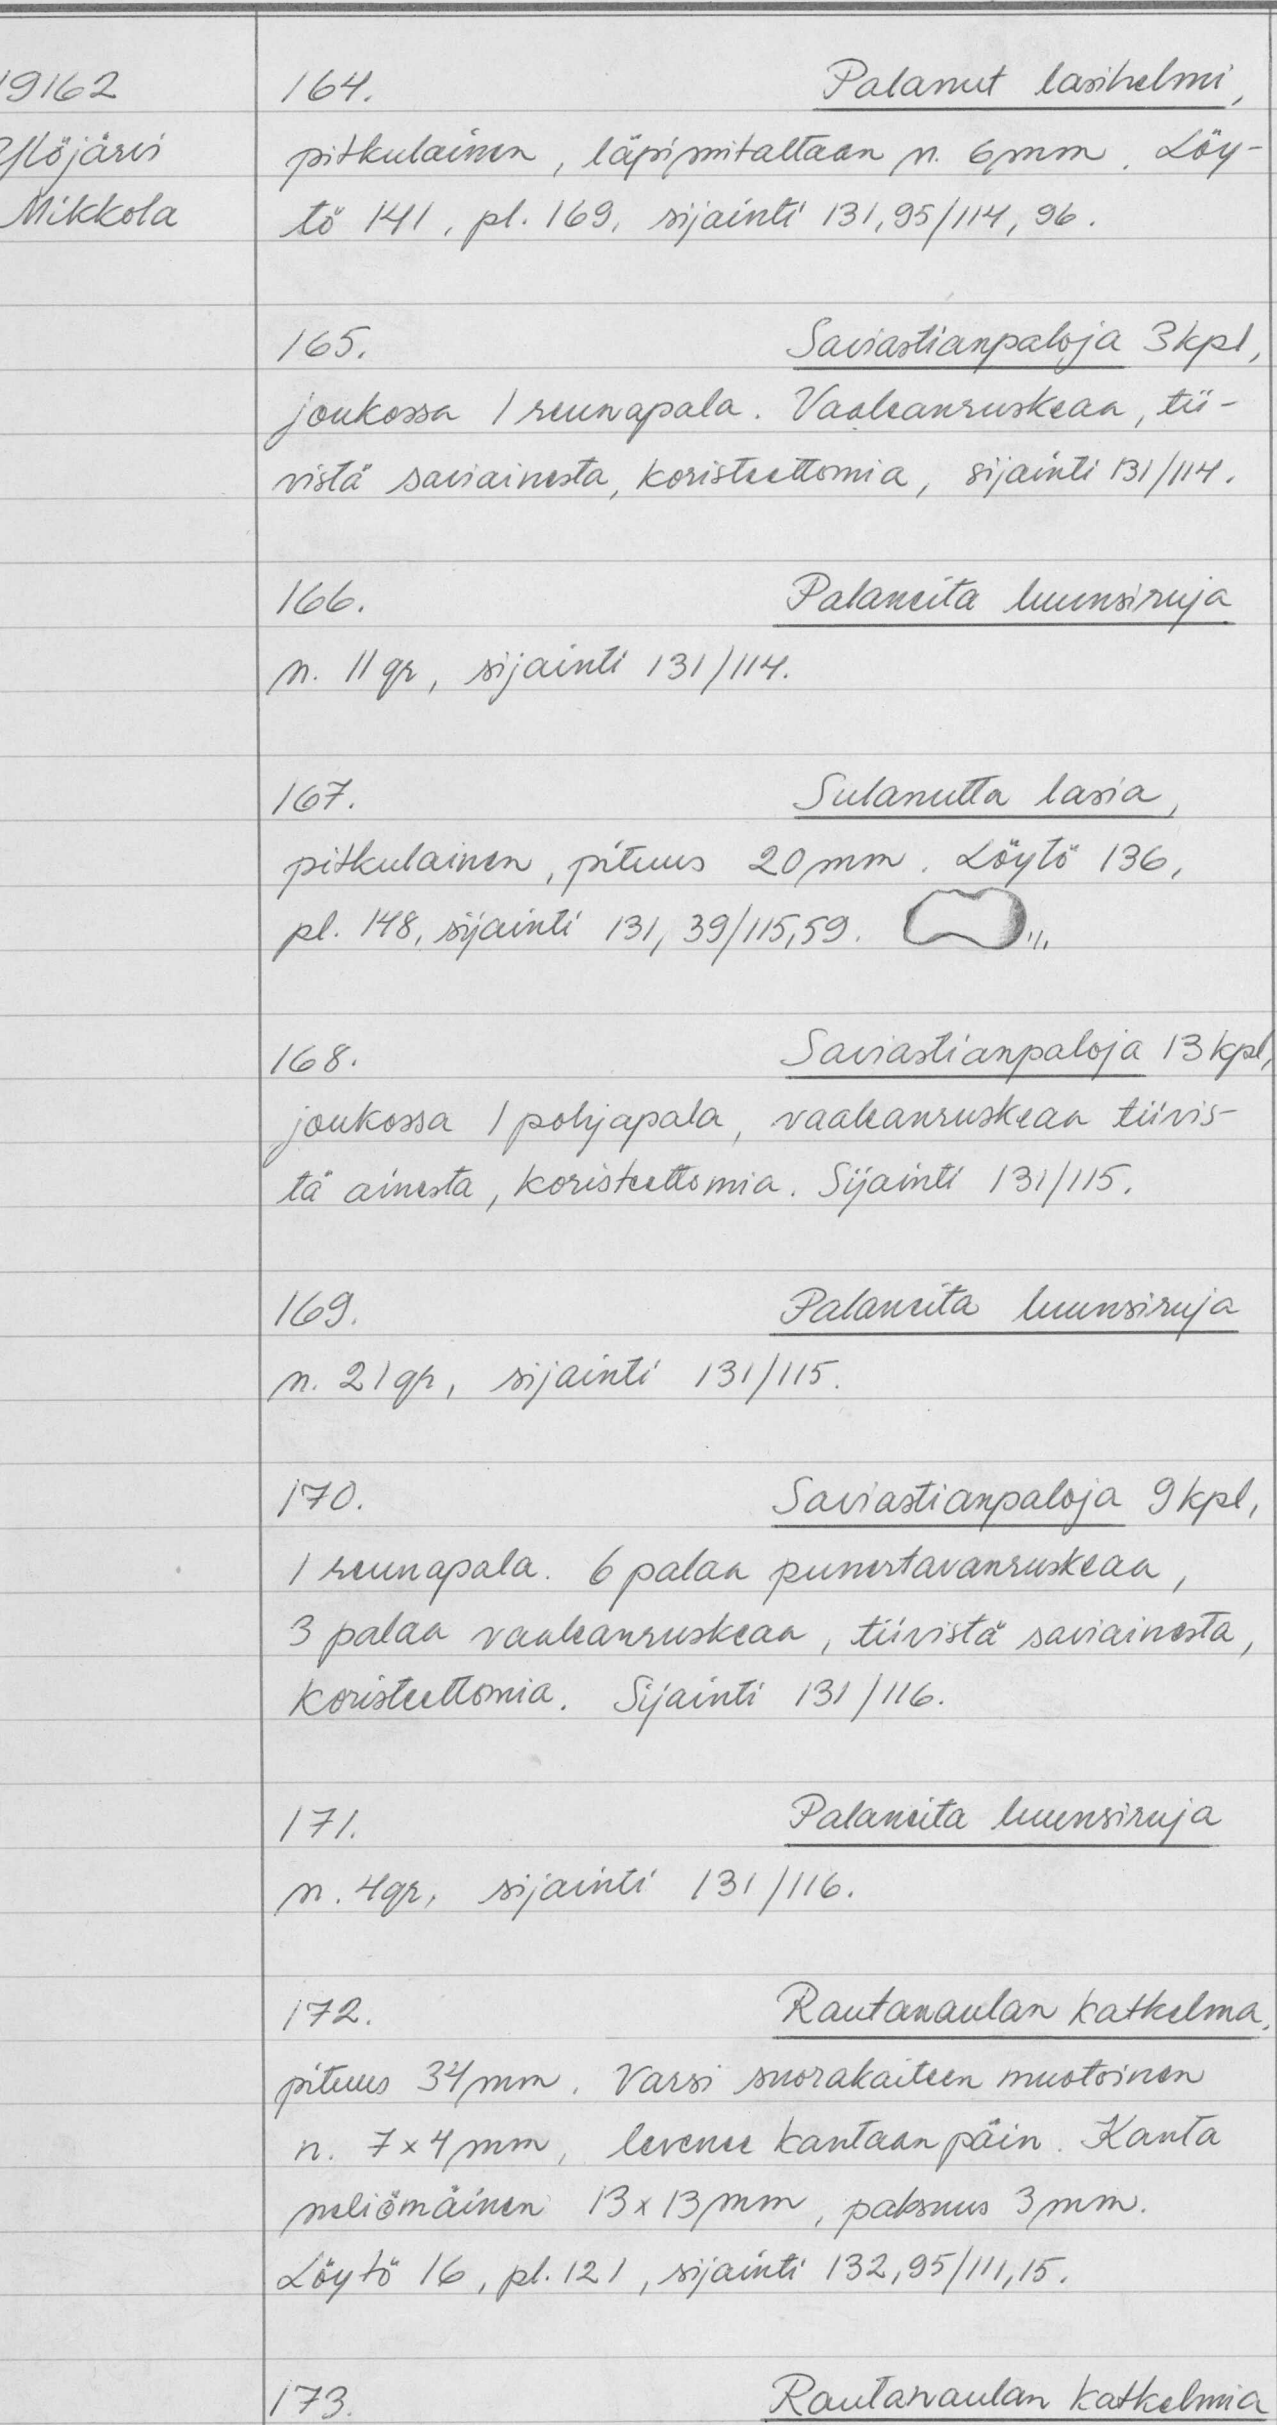 19162
Ylöjärvi
Mikkola
164. Palanut lasihelmi,
pitkulainen, läpimitaltaan n. 6mm. Löy-
tö 141, pl. 169, sijainti 131,95/114,96.
165. Saviastianpaloja 3kpl,
joukossa 1 reunapala. Vaaleanruskeaa, tii-
vistä saviainesta, koristeettomia, sijainti 131/114.
166. Palaneita luunsiruja
n. 11gr, sijainti 131/114.
167. Sulanutta lasia,
pitkulainen, pituus 20mm. Löytö 136,
pl. 148, sijainti 131,39/115,59.
168. Saviastianpaloja 13kpl,
joukossa 1 pohjapala, vaaleanruskeaa tiivis-
tä ainesta, koristeettomia. Sijainti 131/115.
169. Palaneita luunsiruja
n. 21gr, sijainti 131/115.
170. Saviastianpaloja 9kpl,
1 reunapala. 6 palaa punertavanruskeaa,
3 palaa vaaleanruskeaa, tiivistä saviainesta,
koristeettomia. Sijainti 131/116.
171. Palaneita luunsiruja
n. 4gr, sijainti 131/116.
172. Rautanaulan katkelma,
pituus 34mm. Varsi suorakaiteen muotoinen
n. 7x4mm, levenee kantaan päin. Kanta
neliömäinen 13x13mm, paksuus 3mm.
Löytö 16, pl. 121, sijainti 132,95/111,15.
173. Rautanaulan katkelmia